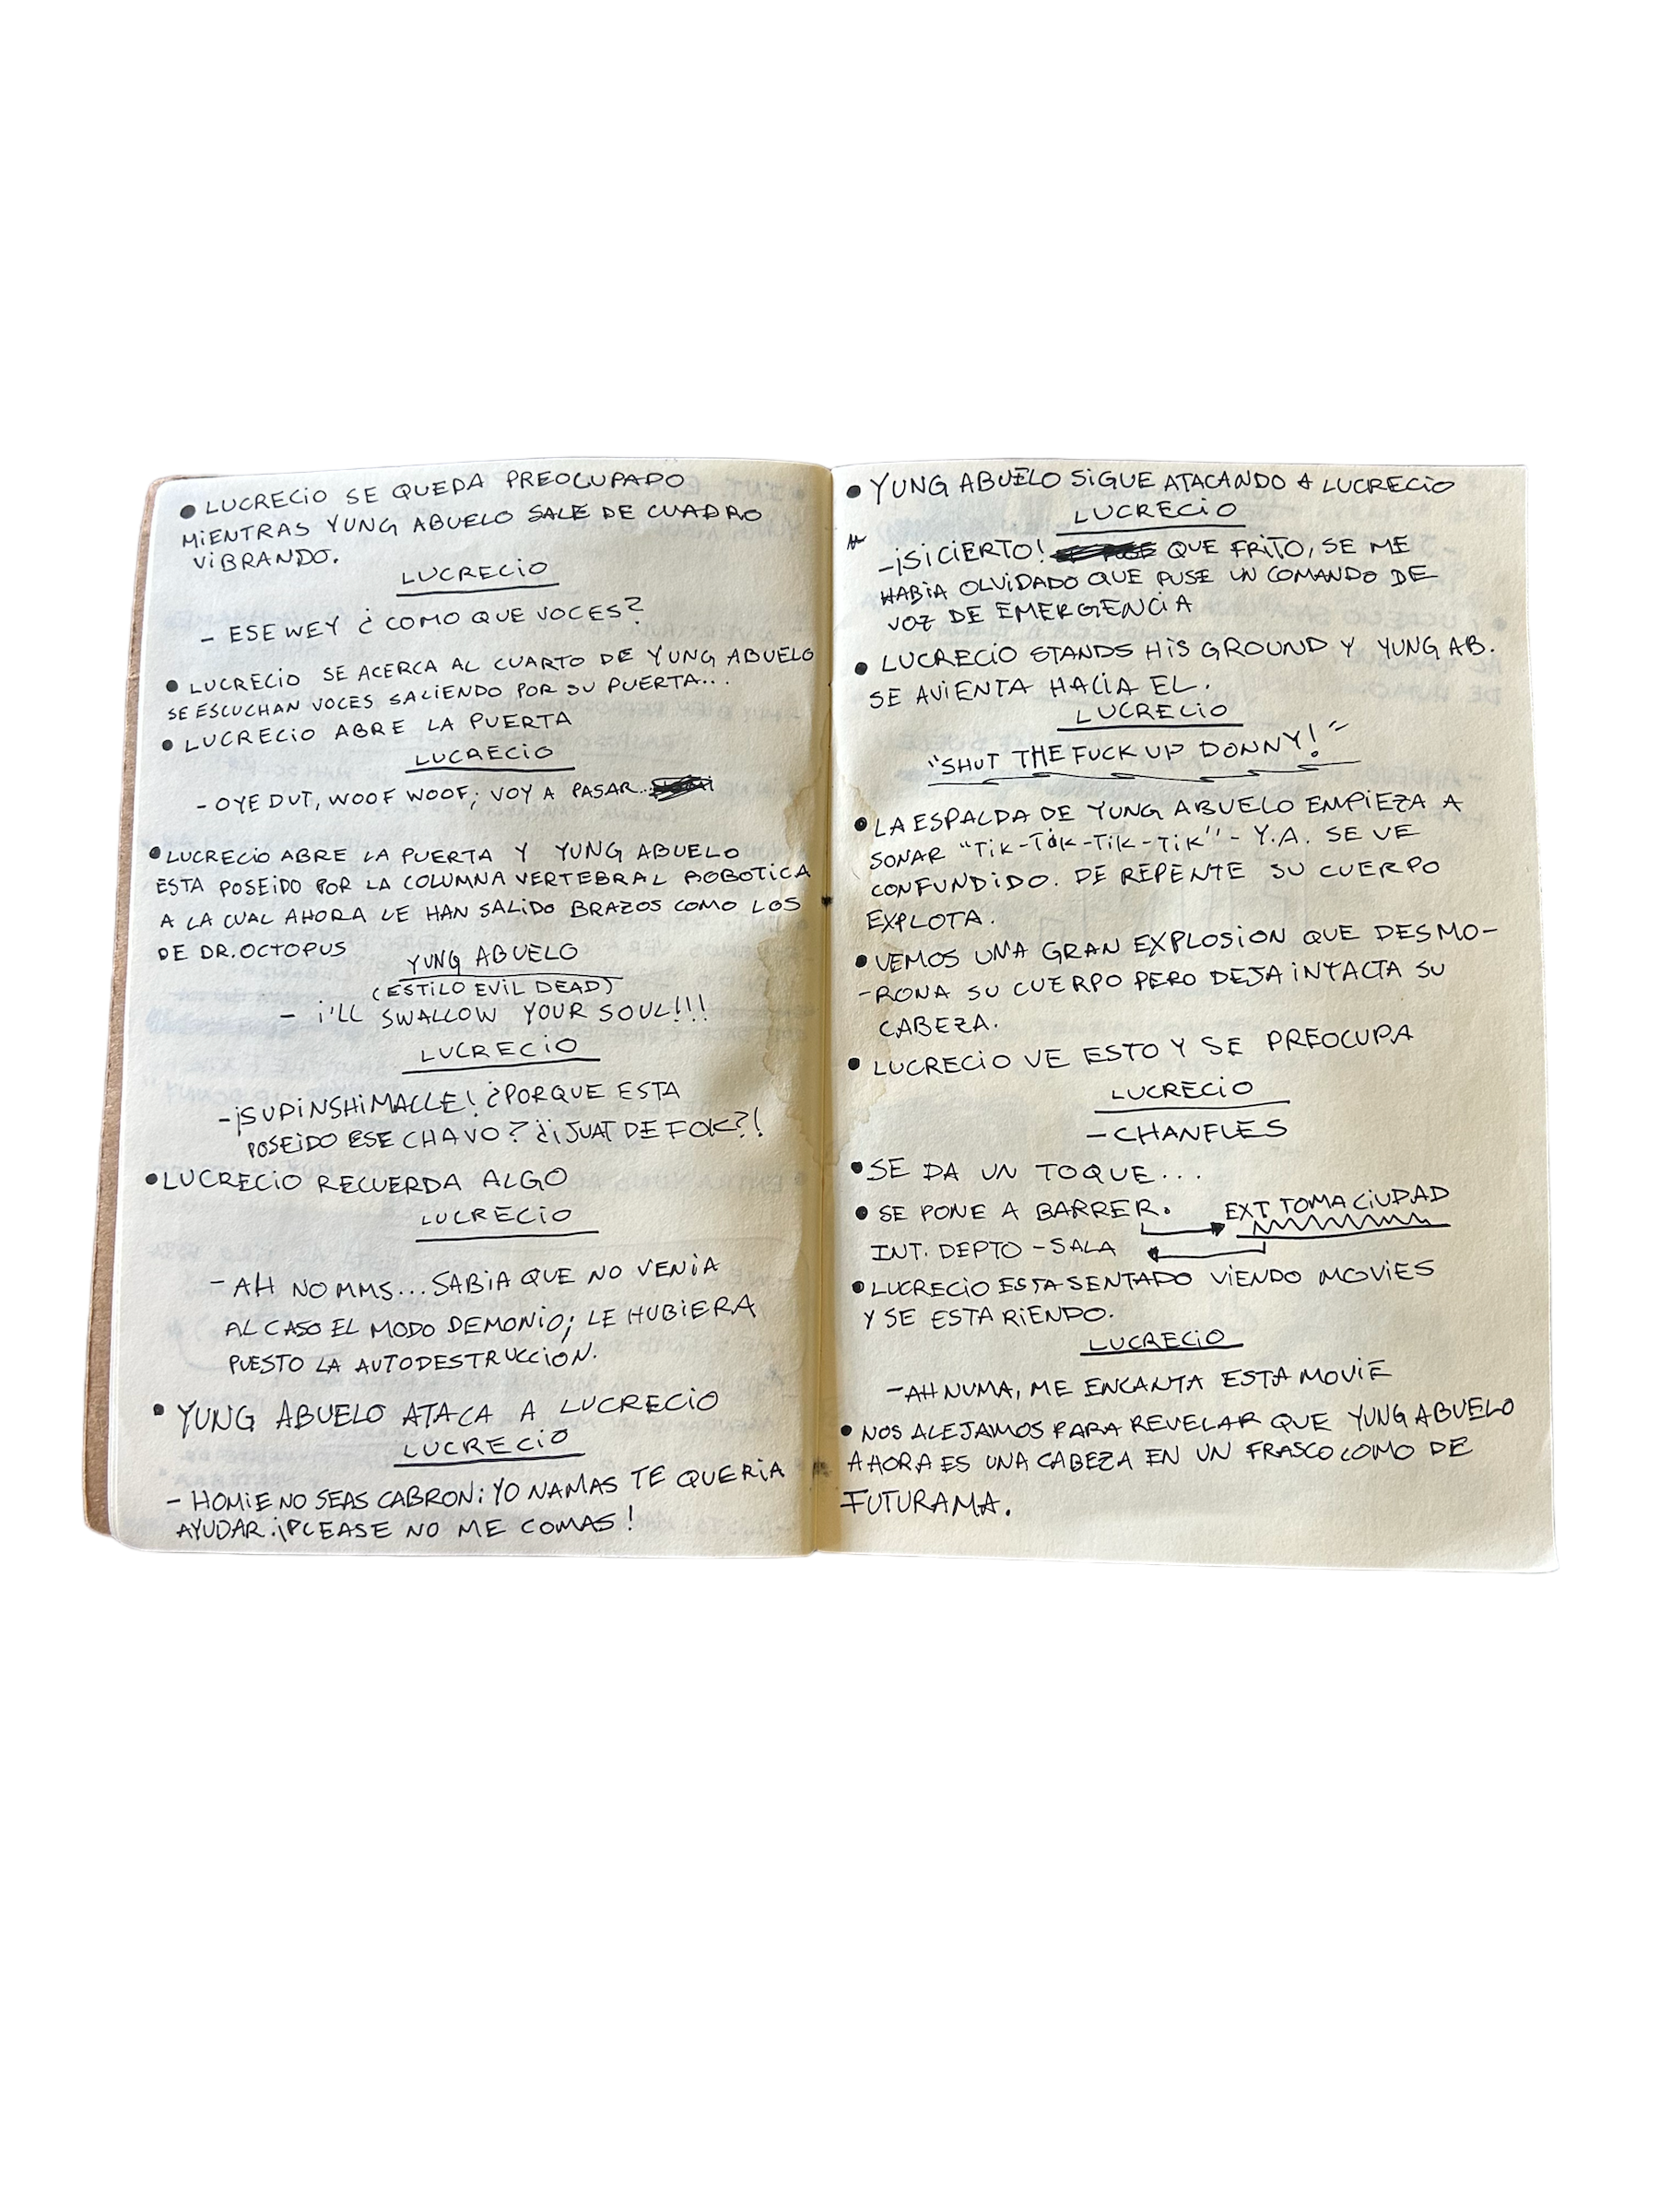 ● LUCRECIO SE QUEDA PREOCUPADO
MIENTRAS YUNG ABUELO SALE DE CUADRO
VIBRANDO.
LUCRECIO
- ESE WEY ¿COMO QUE VOCES?
● LUCRECIO SE ACERCA AL CUARTO DE YUNG ABUELO
SE ESCUCHAN VOCES SALIENDO POR SU PUERTA...
● LUCRECIO ABRE LA PUERTA
LUCRECIO
- OYE DUT, WOOF WOOF; VOY A PASAR..
● LUCRECIO ABRE LA PUERTA Y YUNG ABUELO
ESTA POSEIDO POR LA COLUMNA VERTEBRAL ROBOTICA
A LA CUAL AHORA LE HAN SALIDO BRAZOS COMO LOS
DE DR. OCTOPUS
YUNG ABUELO
(ESTILO EVIL DEAD)
- I'LL SWALLOW YOUR SOUL!!!
LUCRECIO
- ¡SUPINSHIMALLE! ¿PORQUE ESTA
POSEIDO ESE CHAVO? ¿¡JUAT DE FOK?!
● LUCRECIO RECUERDA ALGO
LUCRECIO
- AH NO MMS... SABIA QUE NO VENIA
AL CASO EL MODO DEMONIO; LE HUBIERA
PUESTO LA AUTODESTRUCCION.
● YUNG ABUELO ATACA A LUCRECIO
LUCRECIO
- HOMIE NO SEAS CABRON; YO NAMAS TE QUERIA
AYUDAR. ¡PLEASE NO ME COMAS!
● YUNG ABUELO SIGUE ATACANDO A LUCRECIO
LUCRECIO
- ¡SI CIERTO! QUE FRITO, SE ME
HABIA OLVIDADO QUE PUSE UN COMANDO DE
VOZ DE EMERGENCIA
● LUCRECIO STANDS HIS GROUND Y YUNG AB.
SE AVIENTA HACIA EL.
LUCRECIO
"SHUT THE FUCK UP DONNY!"
● LA ESPALDA DE YUNG ABUELO EMPIEZA A
SONAR "TIK-TOK-TIK-TIK" - Y.A. SE VE
CONFUNDIDO. DE REPENTE SU CUERPO
EXPLOTA.
● VEMOS UNA GRAN EXPLOSION QUE DESMO-
-RONA SU CUERPO PERO DEJA INTACTA SU
CABEZA.
● LUCRECIO VE ESTO Y SE PREOCUPA
LUCRECIO
- CHANFLES
● SE DA UN TOQUE...
● SE PONE A BARRER. EXT TOMA CIUDAD
INT. DEPTO - SALA
● LUCRECIO ESTA SENTADO VIENDO MOVIES
Y SE ESTA RIENDO.
LUCRECIO
- AH NUMA, ME ENCANTA ESTA MOVIE
● NOS ALEJAMOS PARA REVELAR QUE YUNG ABUELO
AHORA ES UNA CABEZA EN UN FRASCO COMO DE
FUTURAMA.